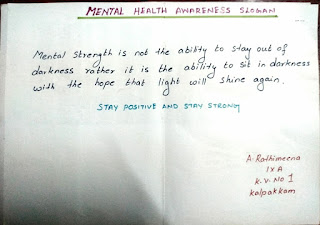 MENTAL HEALTH AWARENESS SLOGAN
Mental strength is not the ability to stay out of
darkness rather it is the ability to sit in darkness
with the hope that light will shine again.
STAY POSITIVE AND STAY STRONG
A. Rathimeena
IX A
K.V. No 1
Kalpakkam